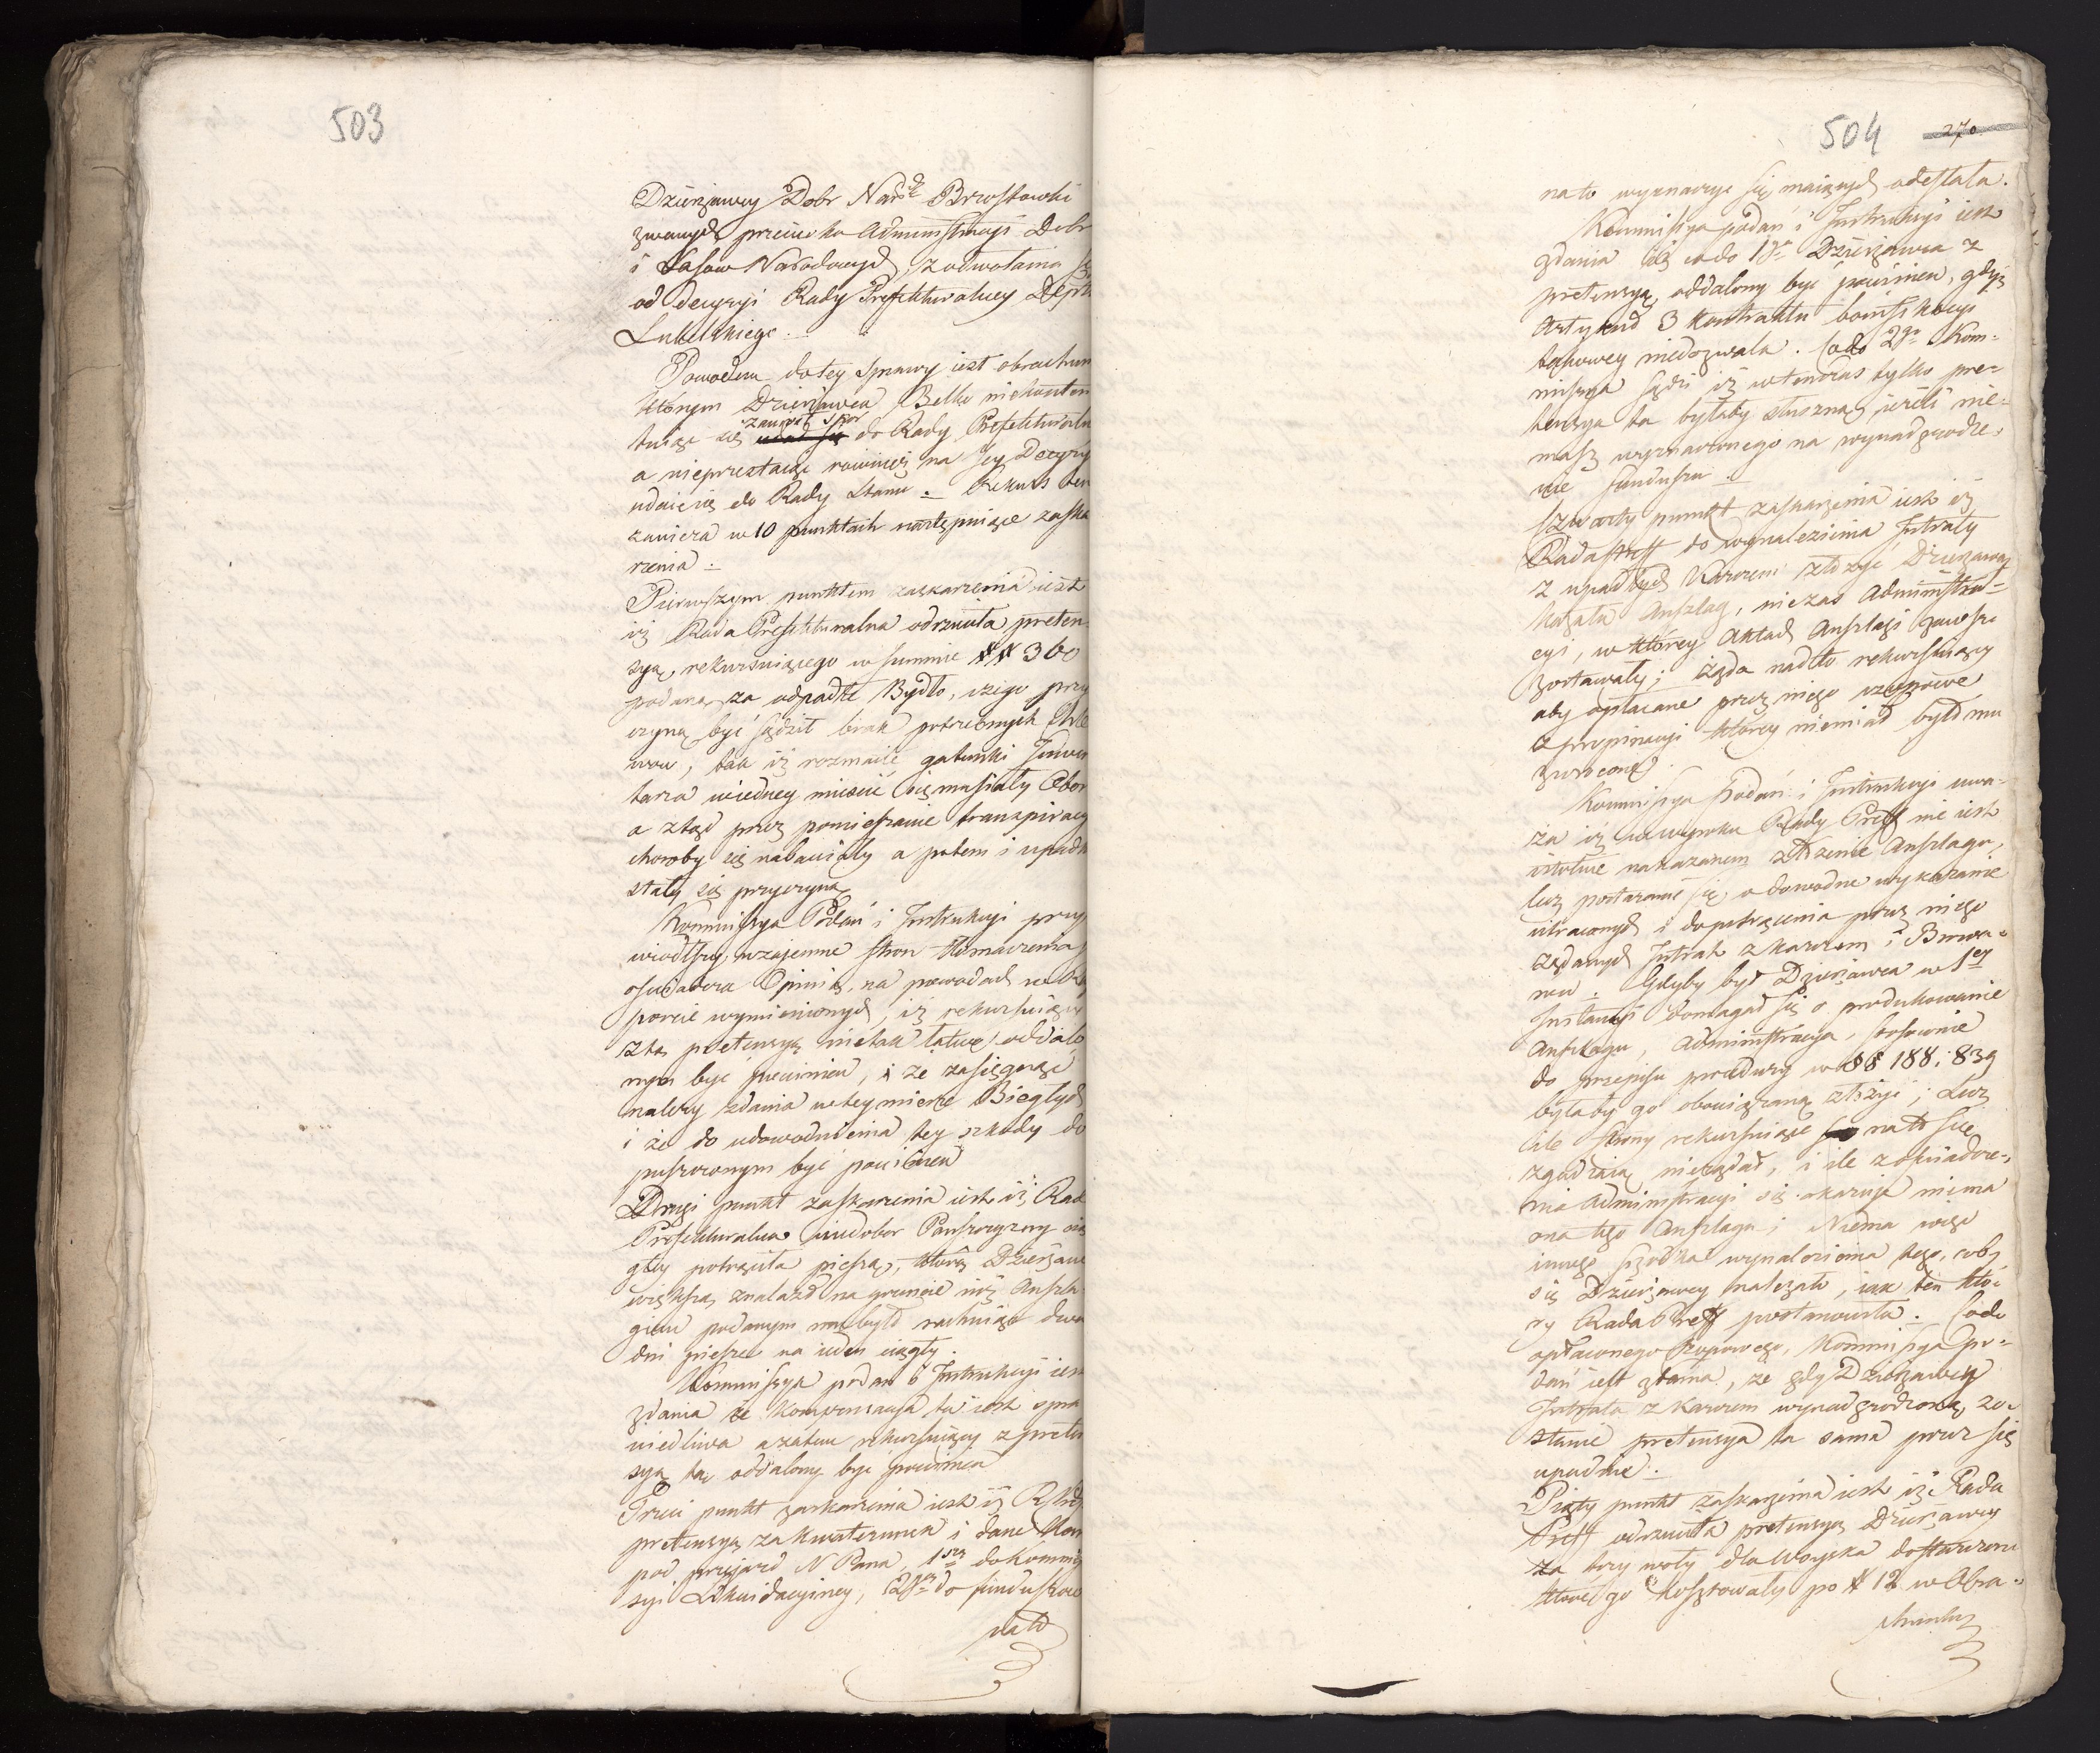 503
Dzierżawcy Dobr Narod Brzostowki
zwanych przeciwko Administracyi Dobr
i Lasow Narodowych, z odwołania się
od decyzyi Rady Prefekturalney Dept
Lubelskiego.
Powodem do tey sprawy iest obrachun
którym Dzierżawca Belke niekonten
tuiąc się zaniosł spor do Rady Prefekturaln
a nieprzestaiąc rownież na Jey Decyzyi
udaie się do Rady Stanu. Rekurs ten
zawiera w 10 punktach następuiące zaska
rzenia.
Pierwszym punktem zaskarżenia iest
iż Rada Prefekturalna odrzuciła preten
syą rekursuiącego w summie 360
podaną za odpadłe Bydło, czego przy
czyną być sądził brak potrzebnych Chle
wow, tak iż rozmaite gatunki Inwen
tarza wiedney mieścić się musiały Obor
a ztąd przez pomieszanie transpiracyi
choroby się nabawiały a potem i upadk
stały się przyczyną
Kommissya Podań i Instrukcyi przy
wiodłszy wzajemne stron tłómaczenia
oswiadcza Opinią na powodach w
porcie wymienionych, iż rekursuiący
ztą pretensyą nietak łatwo oddalo
nym być powinien, i że zasięgnąć
należy zdania wtey mierze Biegłych
i że do udowodnienia tey szkody do
puszczonym być powinien
Drugi punkt zaskarżenia iest iż Rad
Prefekturalna niedobor Panszczyzny cią
głey potrąciła pieszą, którą Dzierżawc
większą znalazł na gruncie niż Anszla
giem podanym mu był rachuiąc dwa
dni piesze na ieden ciągły.
Kommissya podań i Instrukcyi iest
zdania że kompensacya ta iest spra
wiedliwa a zatem rekursuiący z preten
syą tą oddalony być powinien
Trzeci punkt zaskarżenia iest iż
pretensyą za kwaterunek i dane
pod przejazd N Pana, 1szą do Kommis
syi Likwidacyiney, 2gą do funduszow
nato

504 270
nato wyznaczyć się maiących odesłała.
Kommissya podań i Instrukcyi iest
zdania iż co do 1go Dzierżawca z
pretensyą oddalony być powinien, gdyż
Artykuł 3 kontraktu bonifikacyi
takowey niedozwala. Co do 2go Kom-
missya sądzi iż wtenczas tylko pre-
tensya ta byłaby słuszną jeżeli nie-
masz wyznaczonego na wynadgrodze-
nie funduszu.
Czwarty punkt zaskarżenia iest iż
Rada Preff do wynalezienia Intraty
z upadłych Karczem złożyć Dzierżawcy
kazała Anszlag, niezas Administra-
cyi, w którey Aktach Anszlagi zawsze
zostawały; żąda nadto rekursuiący
aby opłacane przez niego czopowe
z propinacyi którey niemiał było mu
zwrocone.
Kommissya Podań i Instrukcyi uwa-
ża iż w wyroku Rady Preff nie iest
istotnie nakazanem złożenie Anszlagu,
lecz postaranie się o dowodne wykazanie
utraconych i do potrącenia przez niego
żądanych Intrat z karczem i Browa-
row. Gdyby był Dzierżawca w 1ey
Instancyi domagał się o produkowanie
Anszlagu, Administracya, stosownie
do przepisu procedury w §§ 188. i 839
byłaby go obowiązaną złożyć; Lecz
ile strony rekursuiące nato się
zgadzaią nieżądał, i ile z oswiadcze-
nia Administracyi się okazuje niema
ona tego Anszlagu; Niema więc
innego szrodka wynalezienia tego, coby
się Dzierżawcy należało, iak ten któ-
ry Rada Preff postanowiła. Co do
opłaconego czopowego, Kommissya po-
dań iest zdania, że gdy Dzierżawcy
Intrata z karczem wynadgrodzoną zo-
stanie pretensya ta sama przez się
upadnie.
Piąty punkt zaskarżenia iest iż Rada
Preff odrzuciła pretensyą Dzierżawcy
za trzy woły dla Woyska dostawione
które go kosztowały po 12 w Obra-
chunku